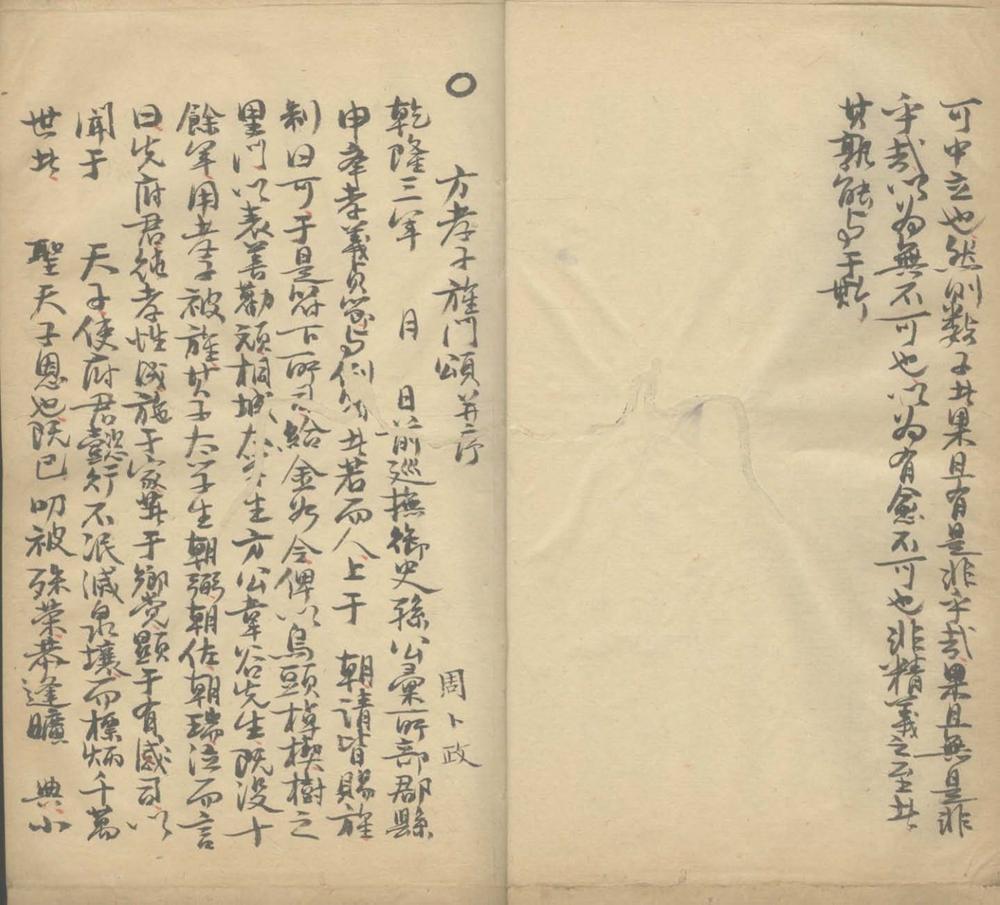 可中立也然則數子者果且有是非乎哉果且無是非
乎哉以為無不可也以為有愈不可也非精義之至者
其孰能與于斯
○
方孝子旌門頌并序
周卜政
乾隆三年 月 日前巡撫御史孫公彙所部郡縣
申奉孝義貞節與例符者若而人上于 朝請皆賜旌
制曰可于是符下所司給金如令俾以烏頭棹楔樹之
里門以表善勸頑桐城太學生方公葦谷先生既沒十
餘年用孝子被旌其子太學生朝弼朝佐朝瑞泣而言
曰先府君純孝性成施于家著于鄉黨顯于有司以
聞于 天子使府君懿行不泯滅泉壤而標炳千萬
世者 聖天子恩也既已叨被殊榮恭逢曠 典小